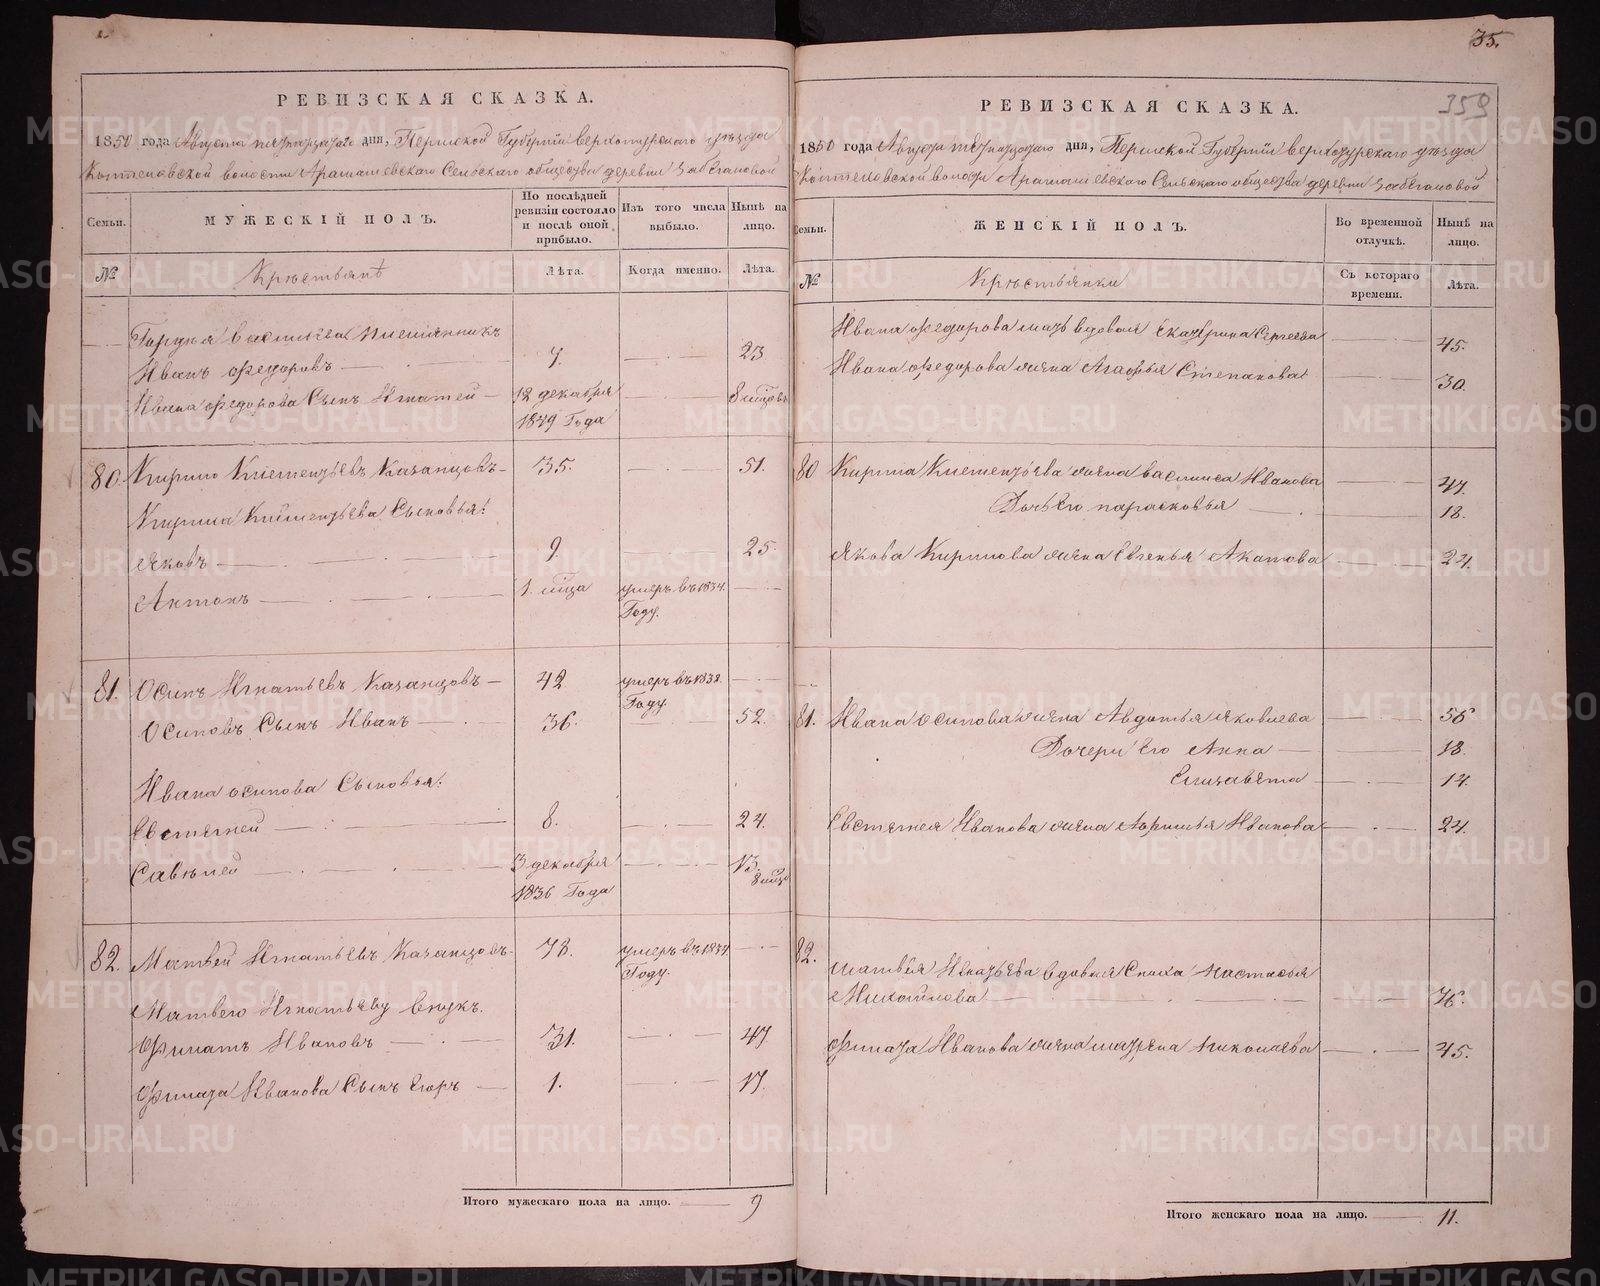 35.
359
РЕВИЗСКАЯ СКАЗКА.
1850 года Августа дня, Пермской Губернии верхотурскаго уѣзда
волости Арамашевскаго Сельскаго общества деревни
Семьи.
МУЖЕСКІЙ ПОЛЪ.
По послѣдней ревизіи состояло и послѣ оной прибыло.
Изъ того числа выбыло.
Нынѣ на лицо.
№
Крестьянѣ
Лѣта.
Когда именно.
Лѣта.
Гордея Васильева племянникъ
Иванъ Федоровъ 7. 23
Ивана Федорова Сынъ Игнатей 12 декабря 8 мцовъ
1849 Года
80. Кирило Климентьевъ Казанцовъ 35. 51.
Кирила Климентьева Сыновья:
Яковъ 9. 25.
Антонъ 1. мца умеръ въ 1834.
Году.
81. Осипъ Игнатьевъ Казанцовъ 42 умеръ въ 1838.
Году.
Осиповъ Сынъ Иванъ 36. 52.
Ивана Осипова Сыновья:
Евстегней 8. 24.
Савелей 3 декабря 13. 8 мцовъ
1836 Года
82. Матвей Игнатьевъ Казанцовъ 78. умеръ въ 1834.
Году.
Матвея Игнатьева Внукъ.
Филатъ Ивановъ 31. 47.
Филата Иванова Сынъ Егоръ 1. 17.
Итого мужескаго пола на лицо. 9
РЕВИЗСКАЯ СКАЗКА.
1850 года Августа дня, Пермской Губернии верхотурскаго уѣзда
волости Арамашевскаго Сельскаго общества деревни
Семьи.
ЖЕНСКІЙ ПОЛЪ.
Во временной отлучкѣ.
Нынѣ на лицо.
№
Крестьянки
Съ котораго времени.
Лѣта.
Ивана Федорова мать вдовая Екатерина Сергеева 45.
Ивана Федорова жена Агафья Степанова 30.
80 Кирила Климентьева жена Василиса Иванова 47.
Дочь его парасковья 18.
Якова Кирилова жена Евгенья 24.
81. Ивана Осипова жена Авдотья Яковлева 56
Дочери его Анна 18.
Елизавета 14.
Евстегнея Иванова жена Иванова 24.
82. Матвея Игнатьева вдовая Сноха Настасья
Михайлова 76.
Филата Иванова жена Николаева 45.
Итого женскаго пола на лицо. 11.
METRIKI.GASO-URAL.RU